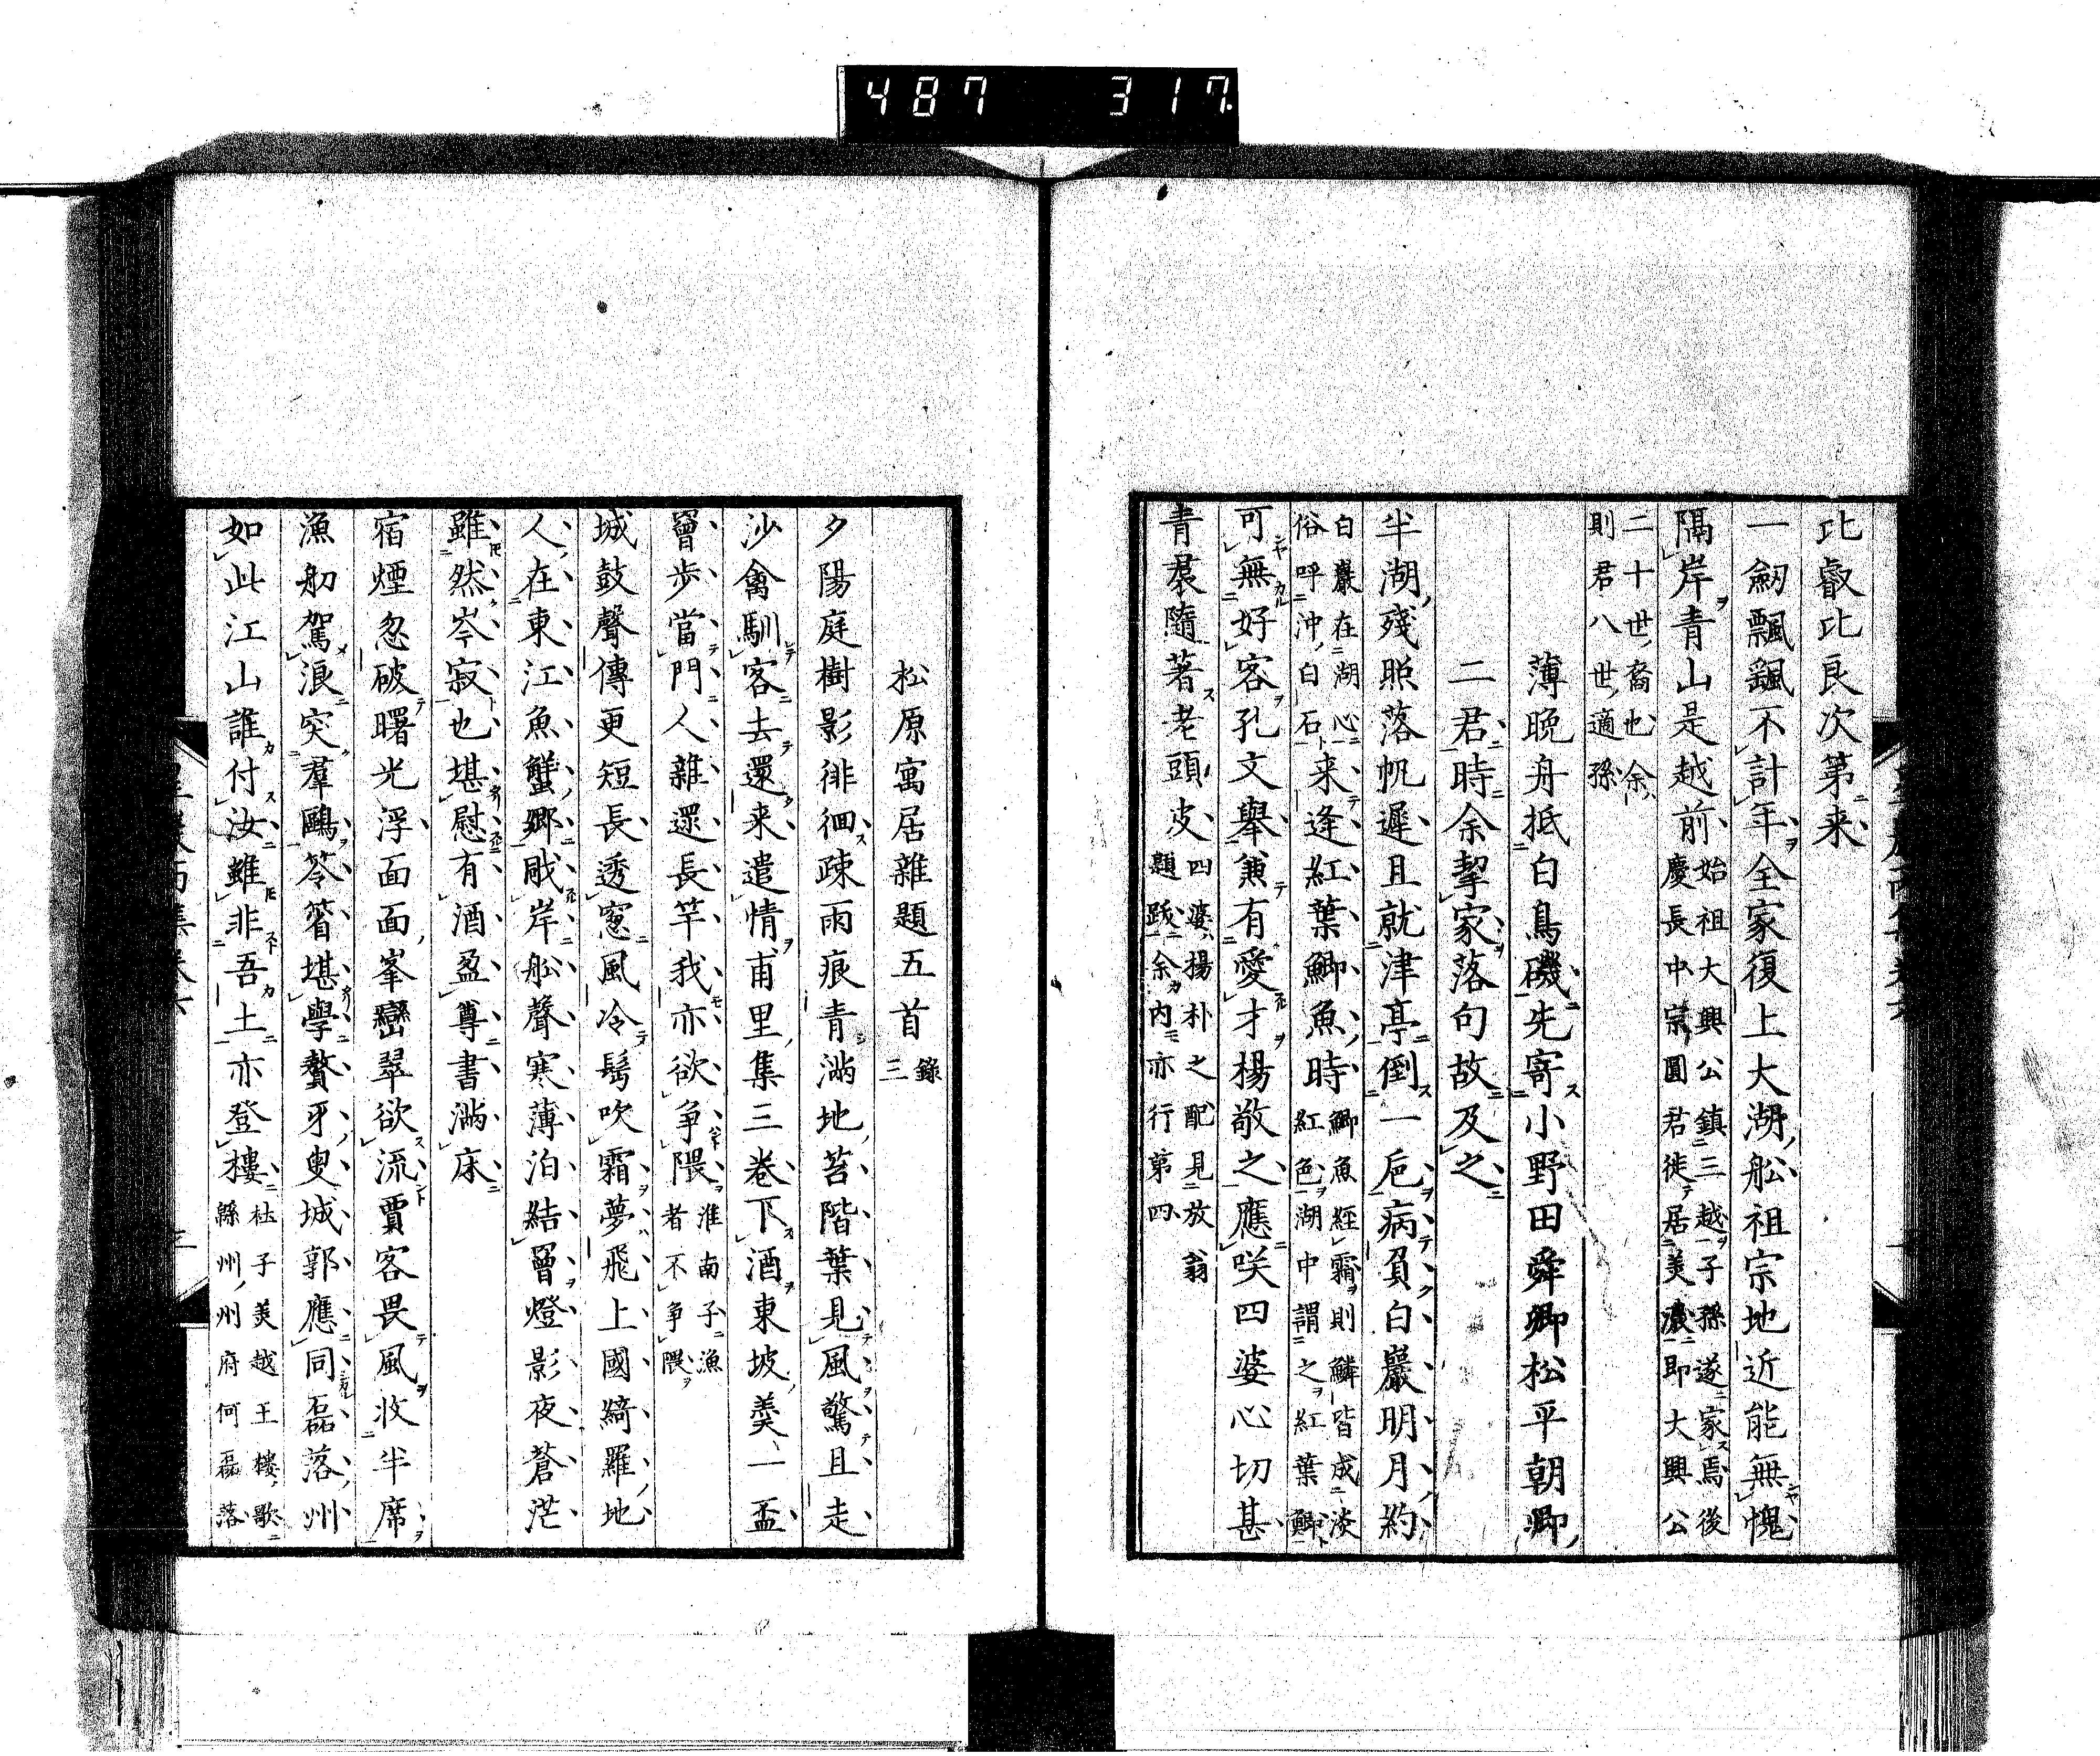 487 317
比叡比良次第来
一劒飄飄不計年全家復上大湖舩祖宗地近能無愧
隔岸青山是越前始祖大興公鎮三越子孫遂家焉後慶長中宗圓君徙居美濃即大興公
二十世裔也余則君八世適孫
薄晩舟抵白鳥磯先寄小野田舜卿松平朝卿
二君時余挈家落句故及之
半湖殘照落帆遲且就津亭倒一巵病負白巖明月約
白巖在湖心俗呼沖白石来逢紅葉鯽魚時鯽魚經霜則鱗皆成淡紅色湖中謂之紅葉鯽
可無好客孔文舉兼有愛才楊敬之應咲四婆心切甚
青裙隨著老頭皮四婆揚朴之配見放翁題跋余内亦行第四
松原寓居雜題五首錄三
夕陽庭樹影徘徊疎雨痕青滿地苔階葉見風驚且走
沙禽馴客去還来遣情甫里集三巻下酒東坡羮一盃
窨步當門人雜還長竿我亦欲争隈淮南子漁者不争隈
城鼓聲傳更短長透窓風冷髩吹霜夢飛上國綺羅地
人在東江魚蟹鄉戙岸舩聲寒薄泊結罾燈影夜蒼茫
雖然岑寂也堪慰有酒盈尊書滿床
宿煙忽破曙光浮面面峯巒翠欲流賈客畏風收半席
漁舠駕浪突羣鷗笭箵堪學聱牙叟城郭應同磊落州
如此江山誰付汝雖非吾土亦登樓杜子美越王樓歌緜州州府何磊落